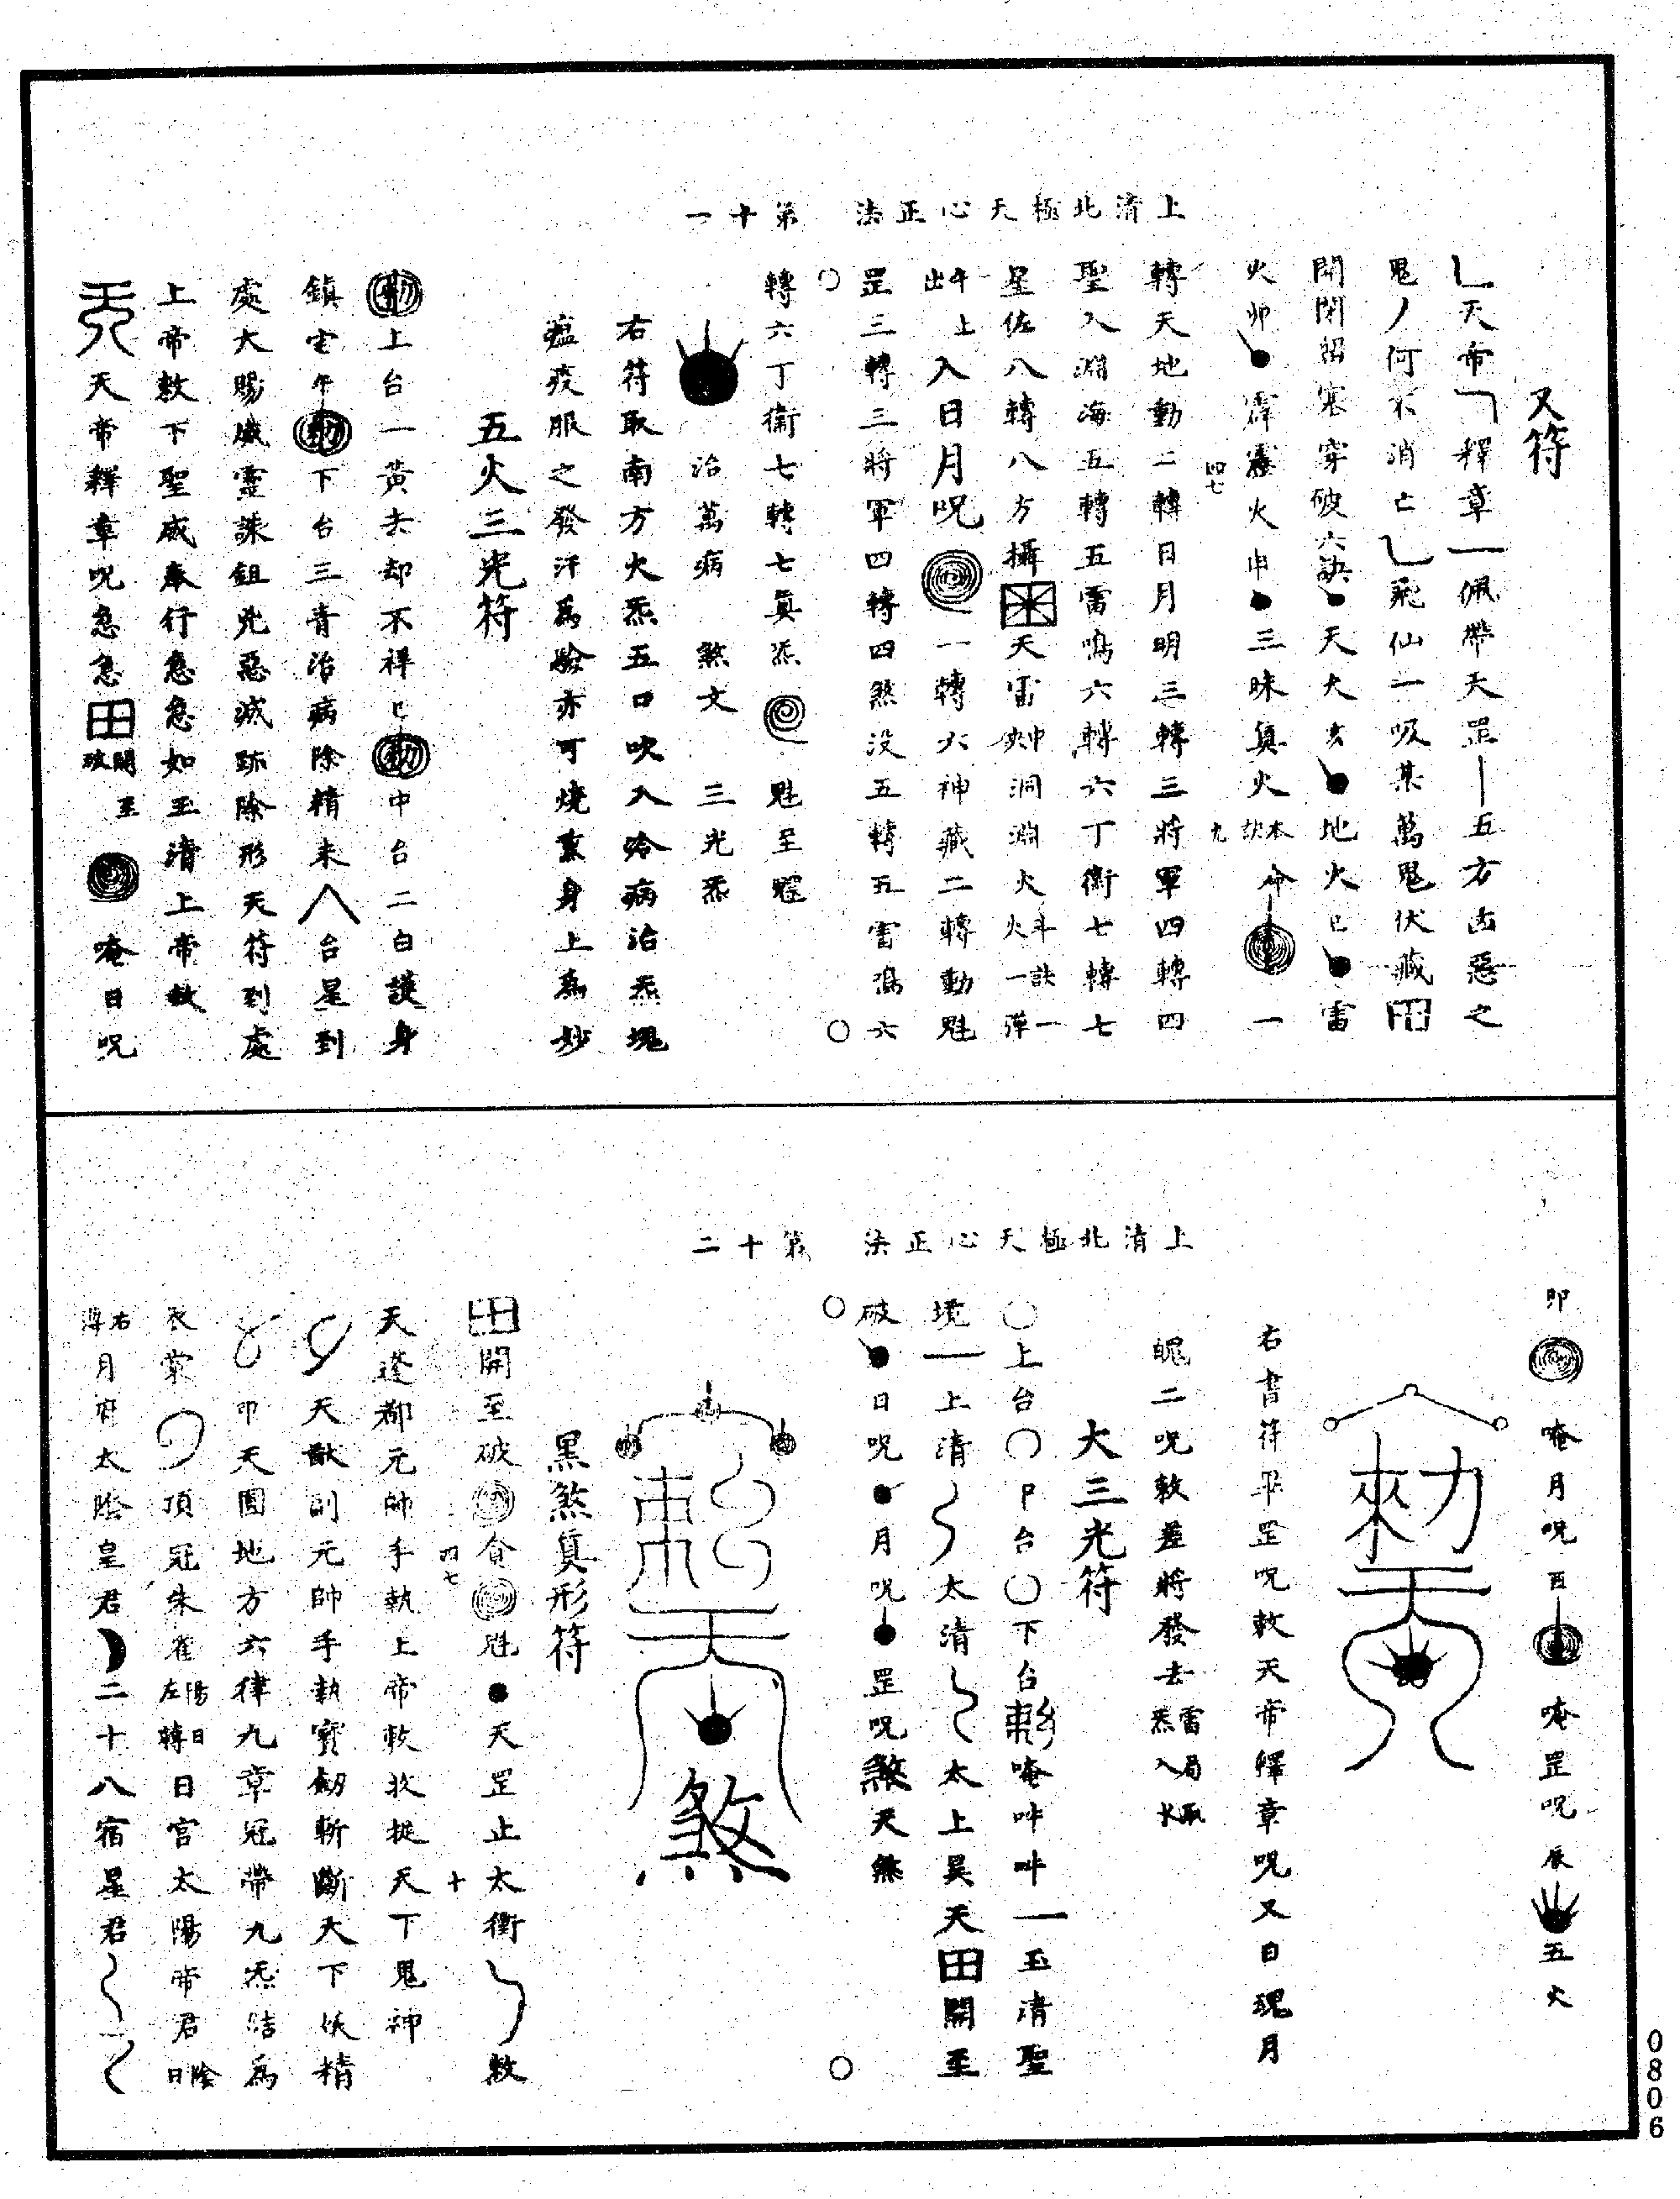 上清北極天心正法　第十一
又符
天帝釋章佩帶天罡五方凶惡之
鬼何不消亡飛仙一吸某萬鬼伏藏
開閉留塞穿破六訣天火亥地火巳雷
火卯霹靂火申三昧真火本訣命一
四七
九
轉天地動二轉日月明三轉三將軍四轉四
聖入淵海五轉五雷鳴六轉六丁衛七轉七
星佐八轉八方攝天雷中洞淵火斗訣火一一彈
午上入日月呪一轉六神藏二轉動魁
罡三轉三將軍四轉四煞没五轉五雷鳴六
轉六丁衛七轉七真炁魁至
治萬病　煞文　三光炁
右符取南方火炁五口吹入治病治炁塊
瘟疫服之發汗為驗亦可燒熏身上為妙
五火三光符
勑上台一黃去却不祥巳勑中台二白護身
鎮宅午勑下台三青治病除精未台星到
處大賜威靈誅鉏兇惡滅跡除形天符到處
上帝敕下聖威奉行急急如玉清上帝敕
天帝釋章呪急急開破至　唵日呪
上清北極天心正法　第十二
卯　唵月呪酉　唵罡呪辰　五火
右書符罡呪敕天帝釋章呪又日魂月
魄二呪敕差將發去雷局取炁入水
大三光符
上台　中台　下台　唵吽吽　玉清聖
境　上清　太清　太上昊天開至
破　日呪　月呪　罡呪煞天煞
黑煞真形符
開至破　魁　天罡止太衝　敕
四七
十
天蓬都元帥手執上帝敕收捉天下鬼神
天猷副元帥手執寶劒斬斷天下妖精
印天圓地方六律九章冠帶九炁結為
衣裳　頂冠朱雀左陽轉日日宮太陽帝君陰日
右薄月府太陰皇君二十八宿星君
0806